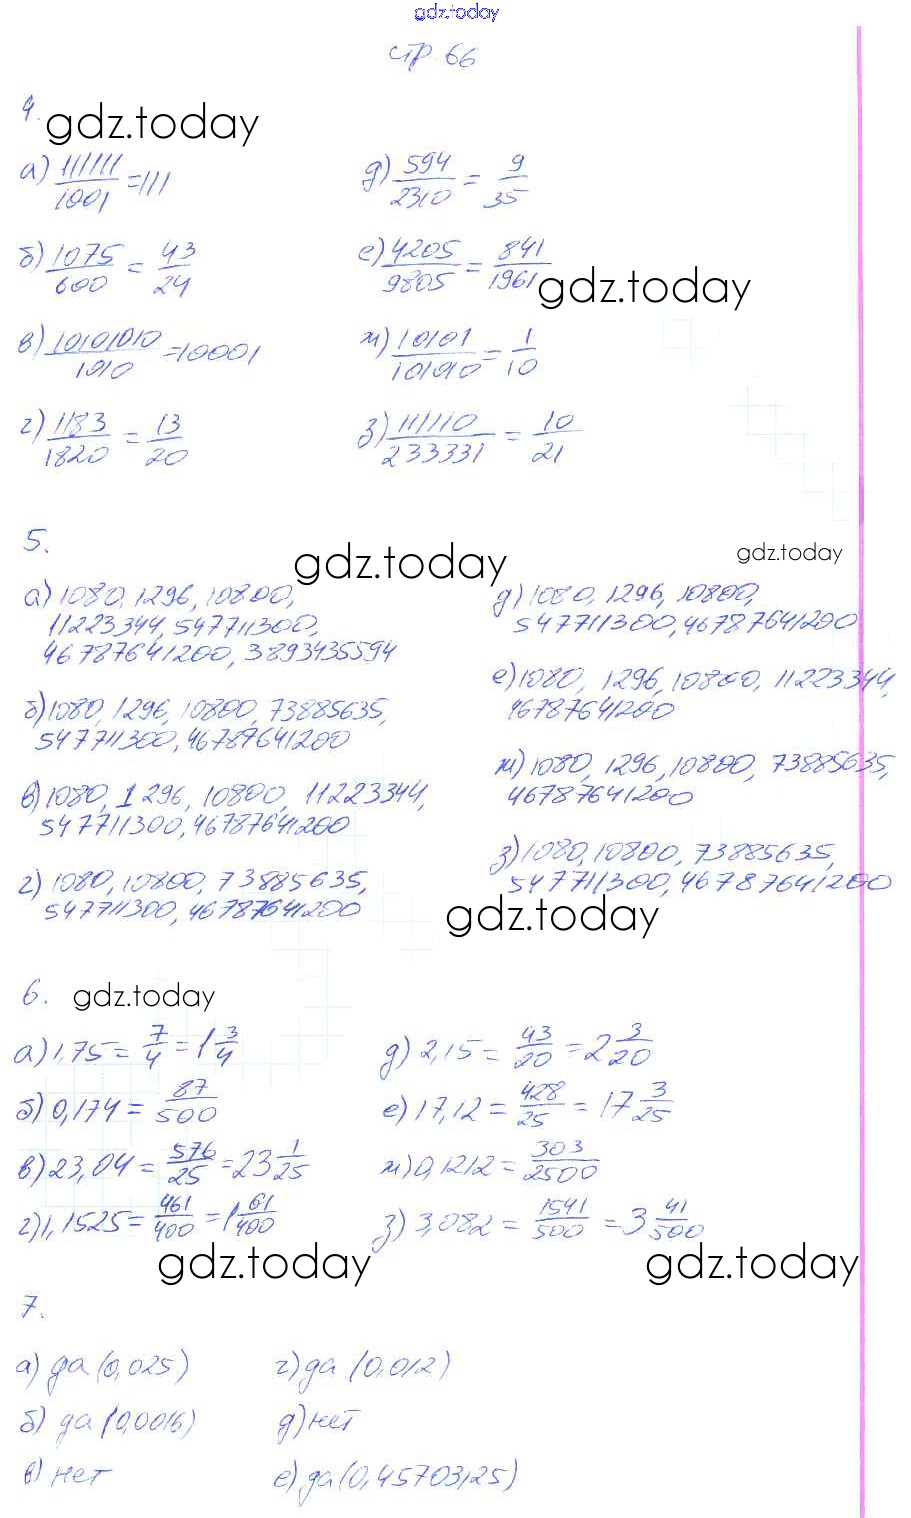 gdz.today
стр 66
4.
gdz.today
а) 111111/1001 = 111
д) 594/2310 = 9/35
б) 1075/600 = 43/24
е) 4205/9805 = 841/1961
gdz.today
в) 10101010/1010 = 10001
ж) 10101/101010 = 1/10
г) 1183/1820 = 13/20
з) 111110/233331 = 10/21
5.
gdz.today
gdz.today
а) 1080, 1296, 10800,
11223344, 547711300,
46787641200, 3893435594
б) 1080, 1296, 10800, 73885635,
547711300, 46787641200
в) 1080, 1296, 10800, 11223344,
547711300, 46787641200
г) 1080, 10800, 73885635,
547711300, 46787641200
д) 1080, 1296, 10800,
547711300, 46787641200
е) 1080, 1296, 10800, 11223344,
46787641200
ж) 1080, 1296, 10800, 73885635,
46787641200
з) 1080, 10800, 73885635,
547711300, 46787641200
gdz.today
6.
gdz.today
а) 1,75 = 7/4 = 1 3/4
д) 2,15 = 43/20 = 2 3/20
б) 0,174 = 87/500
е) 17,12 = 428/25 = 17 3/25
в) 23,04 = 576/25 = 23 1/25
ж) 0,1212 = 303/2500
г) 1,1525 = 461/400 = 1 61/400
з) 3,082 = 1541/500 = 3 41/500
gdz.today
gdz.today
7.
а) да (0,025)
г) да (0,012)
б) да (0,0016)
д) нет
в) нет
е) да (0,45703125)